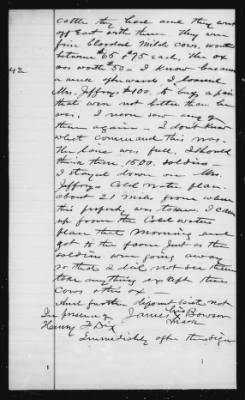 cattle they have and they went
off East with them. They were
fine blooded mild cows, worth
between $65 & $75 each. The ox
was worth $50. I know because
a week afterwards I loaned
Mrs. Jeffreys $400. to buy a pair
that were not better than hers
was. I never saw any of
them again. I don't know
what command this was.
The lane was full. I should
think there 1500 soldiers.
I stayed down on Mrs.
Jeffreys Cold Water place.
about 2½ miles from where
this property was taken. I came
up from the Cold water
place that morning and
got to the farm just as the
soldiers were going away
so that I did not see them
take anything except these
cows & this ox.
And further deponent saith not
In presence of James his Bowson
Henry F Dix X mark
Immediately after the sign
42